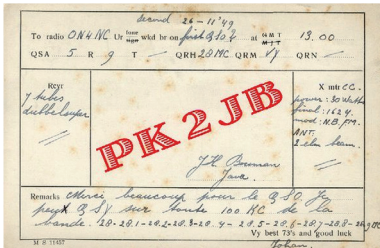 second 26-11'49
To radio ON4NC Ur tone sigs wkd hr on first QSO? at GMT 13.00
QSA 5 R 9 T QRH 28 MC QRM QRN
Rcvr
7 tubes
dubbelsuper
X mtr CC.
power: 30 Watts
final: 1624
mod: N.B. FM.
ANT.
3 elm beam.
PK2JB
J.H. Bouman
Java.
Remarks Merci beaucoup pour le QSO. Je
peux QSY sur toute 100 KC de la
bande. 28-28.1-28.2-28.3-28.4-28.5-28.6-28.7-28.8-
Vy best 73's and good luck
M S 11457
Johan.